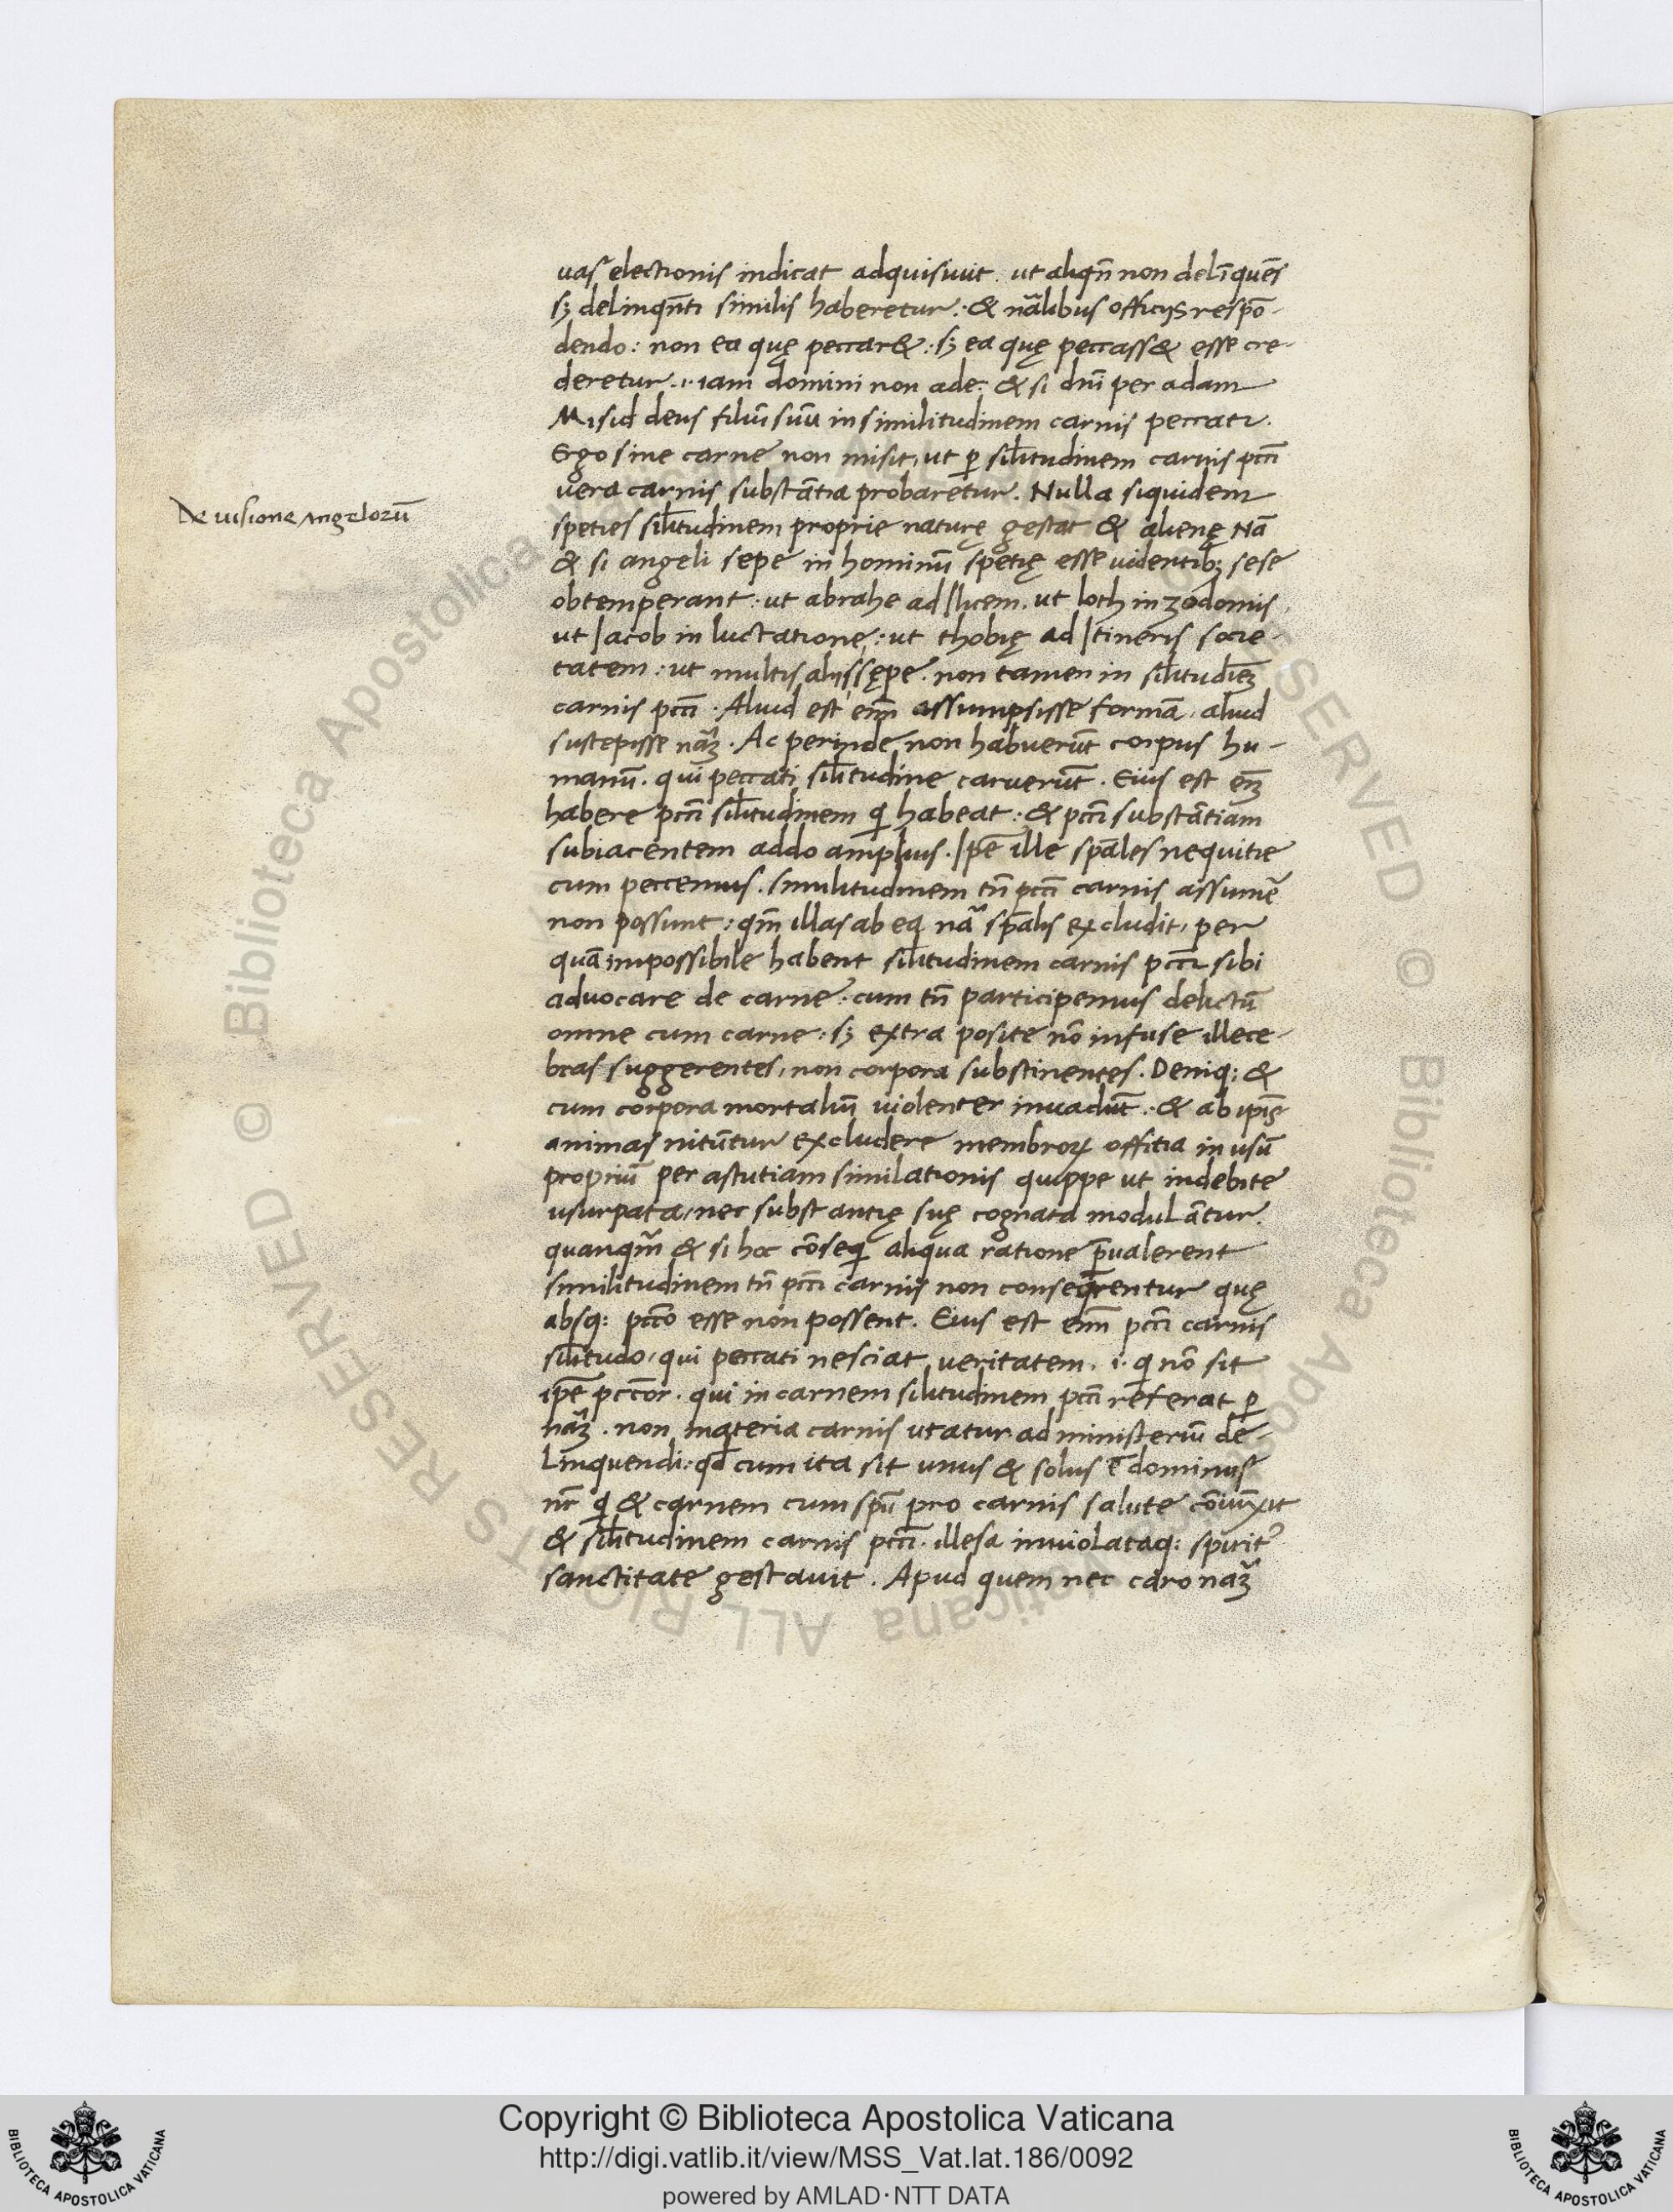 uas electionis indicat adquisiuit. ut aliqn̄ non delīquēs
sꝫ delinqn̄ti similis haberetur: & nālibus officijs respō-
dendo: non ea quę peccar&: sꝫ ea quę peccass& esse cre-
deretur. iam domini non ade: & si dn̄i per adam
Misid deus filiū suū in similitudinem carnis peccati.
Ergo sine carne non misit, ut ꝑ sil̄itudinem carnis pcc̄i
uera carnis substātia probaretur. Nulla siquidem
speties sil̄itudinem proprie naturę gestat & alienę Nā
De uisione Angelorū
& si angeli sepe in hominū spetię esse uidentibꝫ sese
obtemperant: ut abrahe ad Ilicem. ut loth in zodomis,
ut Jacob in luctatione: ut thobię ad Itineris socie-
tatem: ut multis alijs sępe. non tamen in sil̄itudīeꝫ
carnis pcc̄i. Aliud est enī assumpsisse formā, aliud
suscepisse nāꝫ. Ac perinde non habuerūt corpus hu-
manū. qui peccati sil̄itudine caruerūt. Eius est eīꝫ
habere pcc̄i sil̄itudinem q̇ habeat: & pcc̄i substātiam
subiacentem addo amplius. Ipsē ille spāles nequitie
cum peccemus. similitudinem tn̄ pcc̄i carnis assumē
non possunt: qm̄ illas ab eq nā spālis excludit, per
quā impossibile habent sil̄itudinem carnis pcc̄i sibi
aduocare de carne: cum tn̄ participemus delictū
omne cum carne: sꝫ extra posite nō infuse illece-
bras suggerentes, non corpora substinentes. Deniq; &
cum corpora mortaliū uiolenter inuadūt: & ab ipīs
animas nitūtur excludere membroꝝ offitia in usū
propriū per astutiam similationis quippe ut indebite
usurpata, nec substantię suę cognata modulātur.
quanqm̄ & si hoc cōseq̇ aliqua ratione p̄ualerent
similitudinem tn̄ pcc̄i carnis non conseqrentur quę
absq; pcc̄o esse non possent. Eius est enī pcc̄i carnis
sil̄itudo, qui peccati nesciat ueritatem. i. q̇ nō sit
ipē pcc̄or. qui in carnem silitudinem pcc̄i referat ꝑ
nāꝫ. non materia carnis utatur ad ministeriū de-
linquendi: qd̄ cum ita sit unus & solus ē dominus
nr̄ q̇ & carnem cum spū pro carnis salute cōiunxit
& sil̄itudinem carnis pcc̄i. illesa inuiolataq; spirit᾽
sanctitate gestauit. Apud quem nec caro nāꝫ
Copyright © Biblioteca Apostolica Vaticana
http://digi.vatlib.it/view/MSS_Vat.lat.186/0092
powered by AMLAD · NTT DATA
BIBLIOTECA APOSTOLICA VATICANA
BIBLIOTECA APOSTOLICA VATICANA